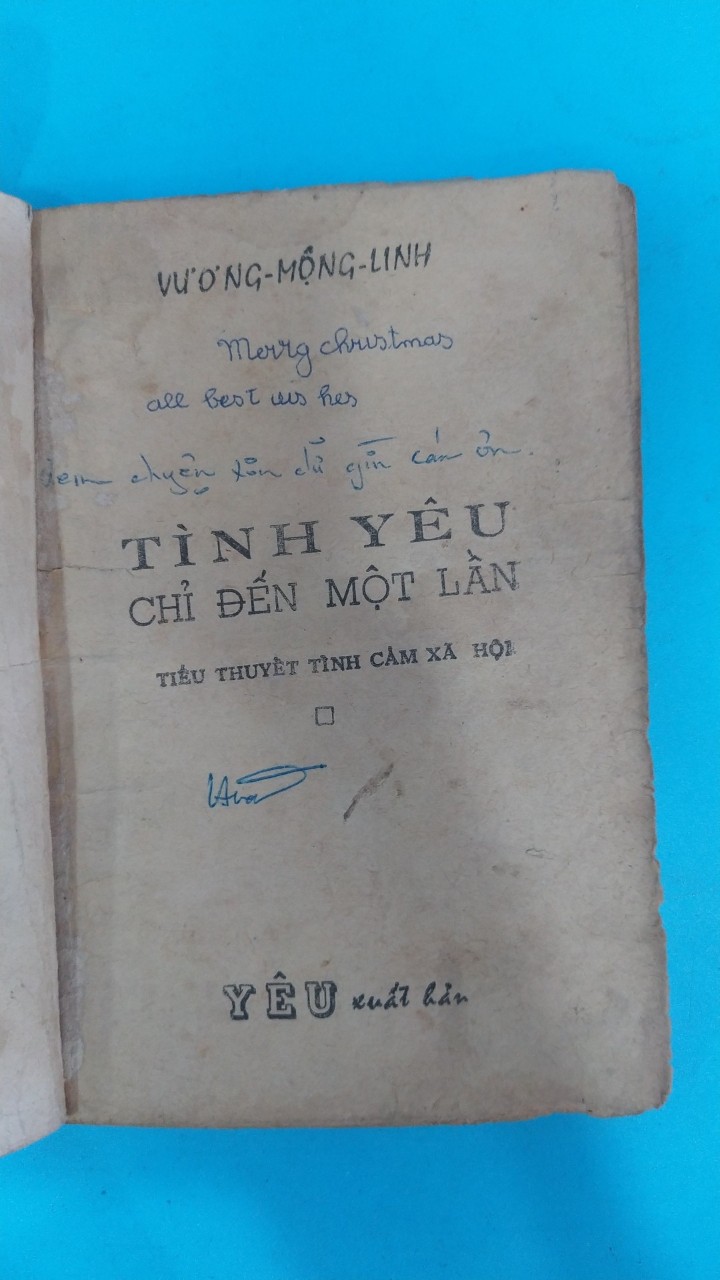 VƯƠNG-MỘNG-LINH
Merry christmas
all best wishes
xem chuyện xin giữ gìn cám ơn.
TÌNH YÊU
CHỈ ĐẾN MỘT LẦN
TIỂU THUYẾT TÌNH CẢM XÃ HỘI
YÊU xuất bản